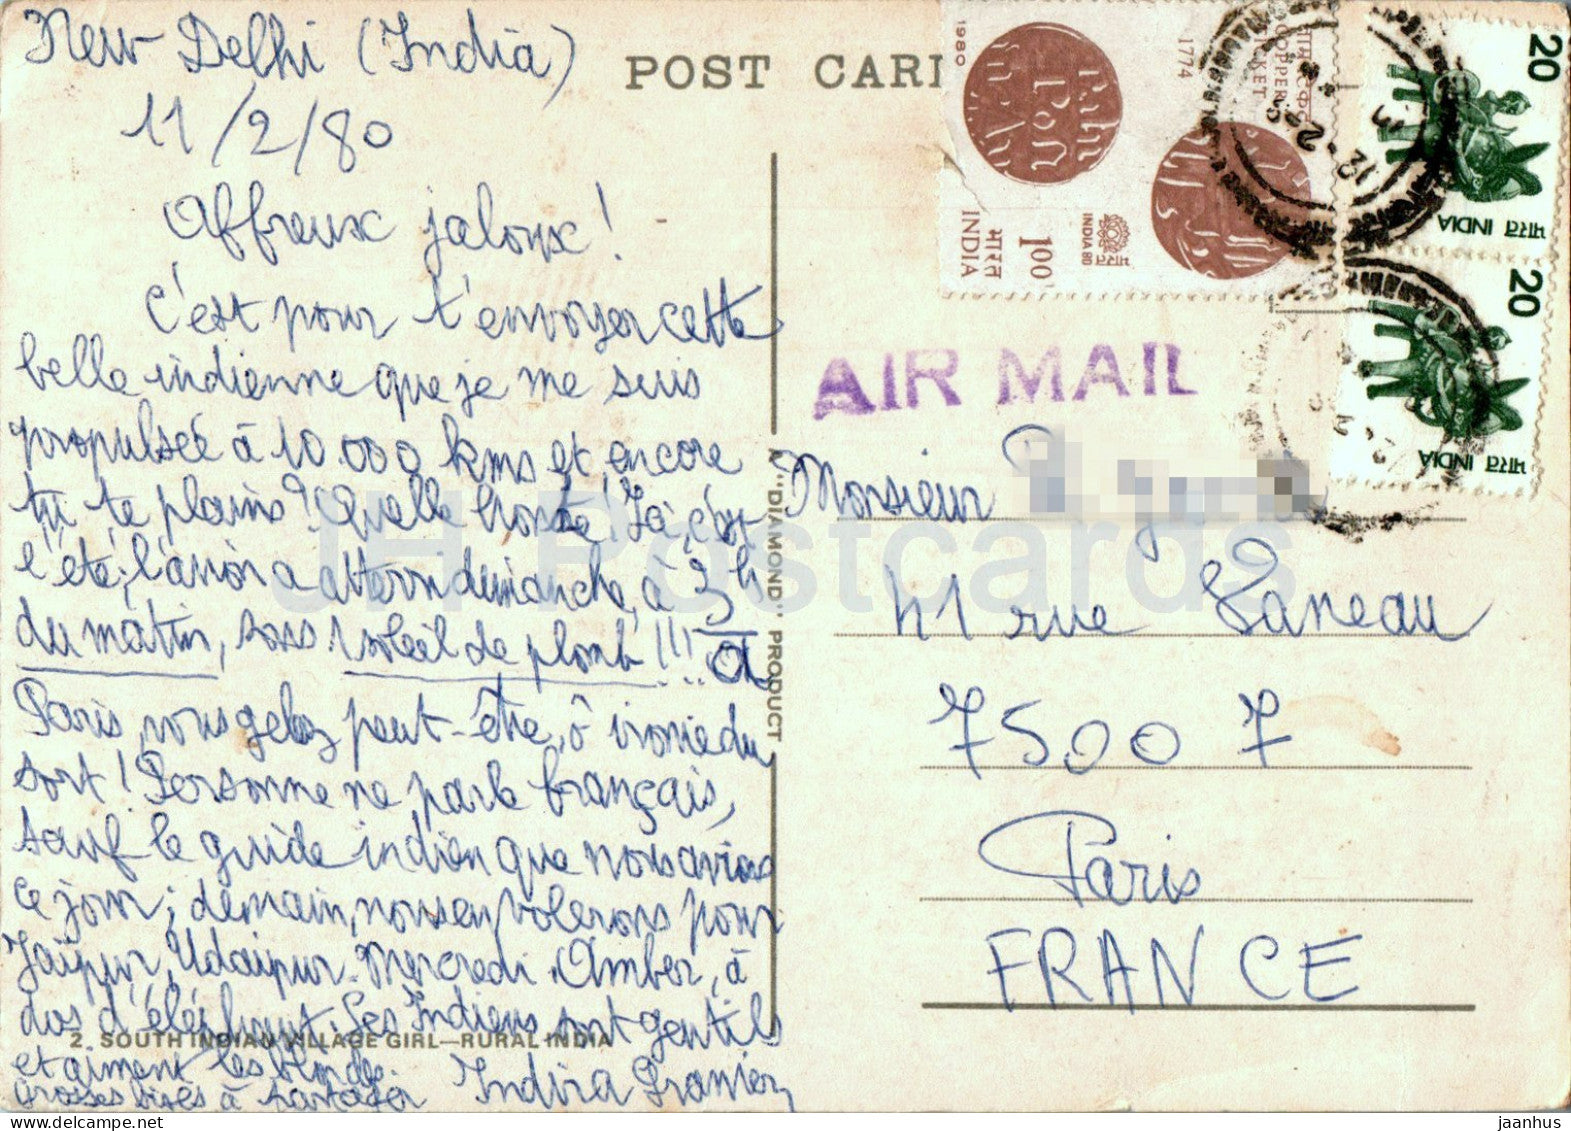 New Delhi (India)
11/2/80
Affreux jaloux !
C'est pour t'envoyer cette
belle indienne que je me suis
propulsée à 10.000 kms et encore
tu te plains ! Quelle honte ! Ici, c'est
l'été ; l'avion a atterri dimanche, à 3h
du matin, sous 1 soleil de plomb !!! à
Paris, vous gelez peut-être, ô ironie du
sort ! Personne ne parle français,
sauf le guide indien que nous avions
ce jour ; demain, nous envolerons pour
Jaïpur, Udaipur. Mercredi, Amber, à
dos d'éléphant. Les Indiens sont gentils
et aiment les blondes.
Grosses bises à partager Indira
2. SOUTH INDIAN VILLAGE GIRL—RURAL INDIA
A "DIAMOND" PRODUCT
POST CAR
1980
1774
COPPER
TICKET
INDIA 80
भारत
1.00
भारत
INDIA
20
भारत INDIA
20
भारत INDIA
AIR MAIL
Monsieur
41 rue Vaneau
75007
Paris
FRANCE
JH Postcards
delcampe.net
jaanhus